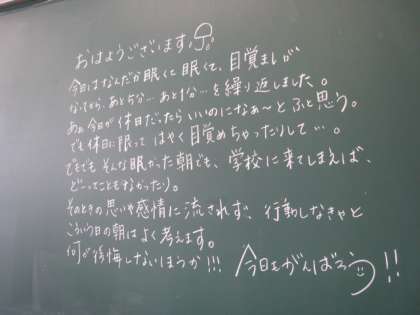 おはようございます。
今日はなんだか眠くて眠くて、目覚ましが
なってから、あと5分…あと1分…を繰り返しました。
あぁ今日が休日だったらいいのになぁ〜とふと思う。
でも休日に限ってはやく目覚めちゃったりして…。
でもでもそんな眠かった朝でも、学校に来てしまえば、
どーってこともなかったり。
そのときの思いや感情に流されず、行動しなきゃと
こういう日の朝はよく考えます。
何が後悔しないほうか!!! 今日もがんばろう!!